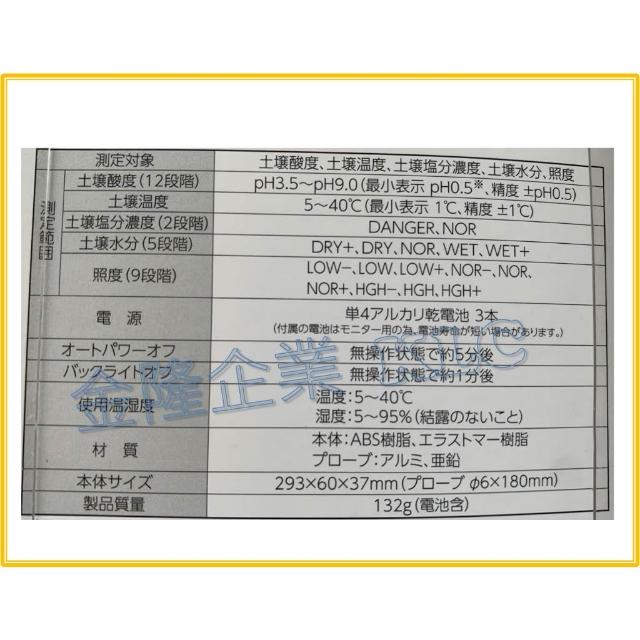 測定対象 土壌酸度、土壌温度、土壌塩分濃度、土壌水分、照度
測定範囲
土壌酸度(12段階) pH3.5～pH9.0(最小表示 pH0.5※、精度 ±pH0.5)
土壌温度 5～40℃(最小表示 1℃、精度 ±1℃)
土壌塩分濃度(2段階) DANGER、NOR
土壌水分(5段階) DRY+、DRY、NOR、WET、WET+
照度(9段階) LOW−、LOW、LOW+、NOR−、NOR、
NOR+、HGH−、HGH、HGH+
電源 単4アルカリ乾電池 3本
(付属の電池はモニター用の為、電池寿命が短い場合があります。)
オートパワーオフ 無操作状態で約5分後
バックライトオフ 無操作状態で約1分後
使用温湿度 温度:5～40℃
湿度:5～95%(結露のないこと)
材質 本体:ABS樹脂、エラストマー樹脂
プローブ:アルミ、亜鉛
本体サイズ 293×60×37mm(プローブ φ6×180mm)
製品質量 132g(電池含)
金隆企業